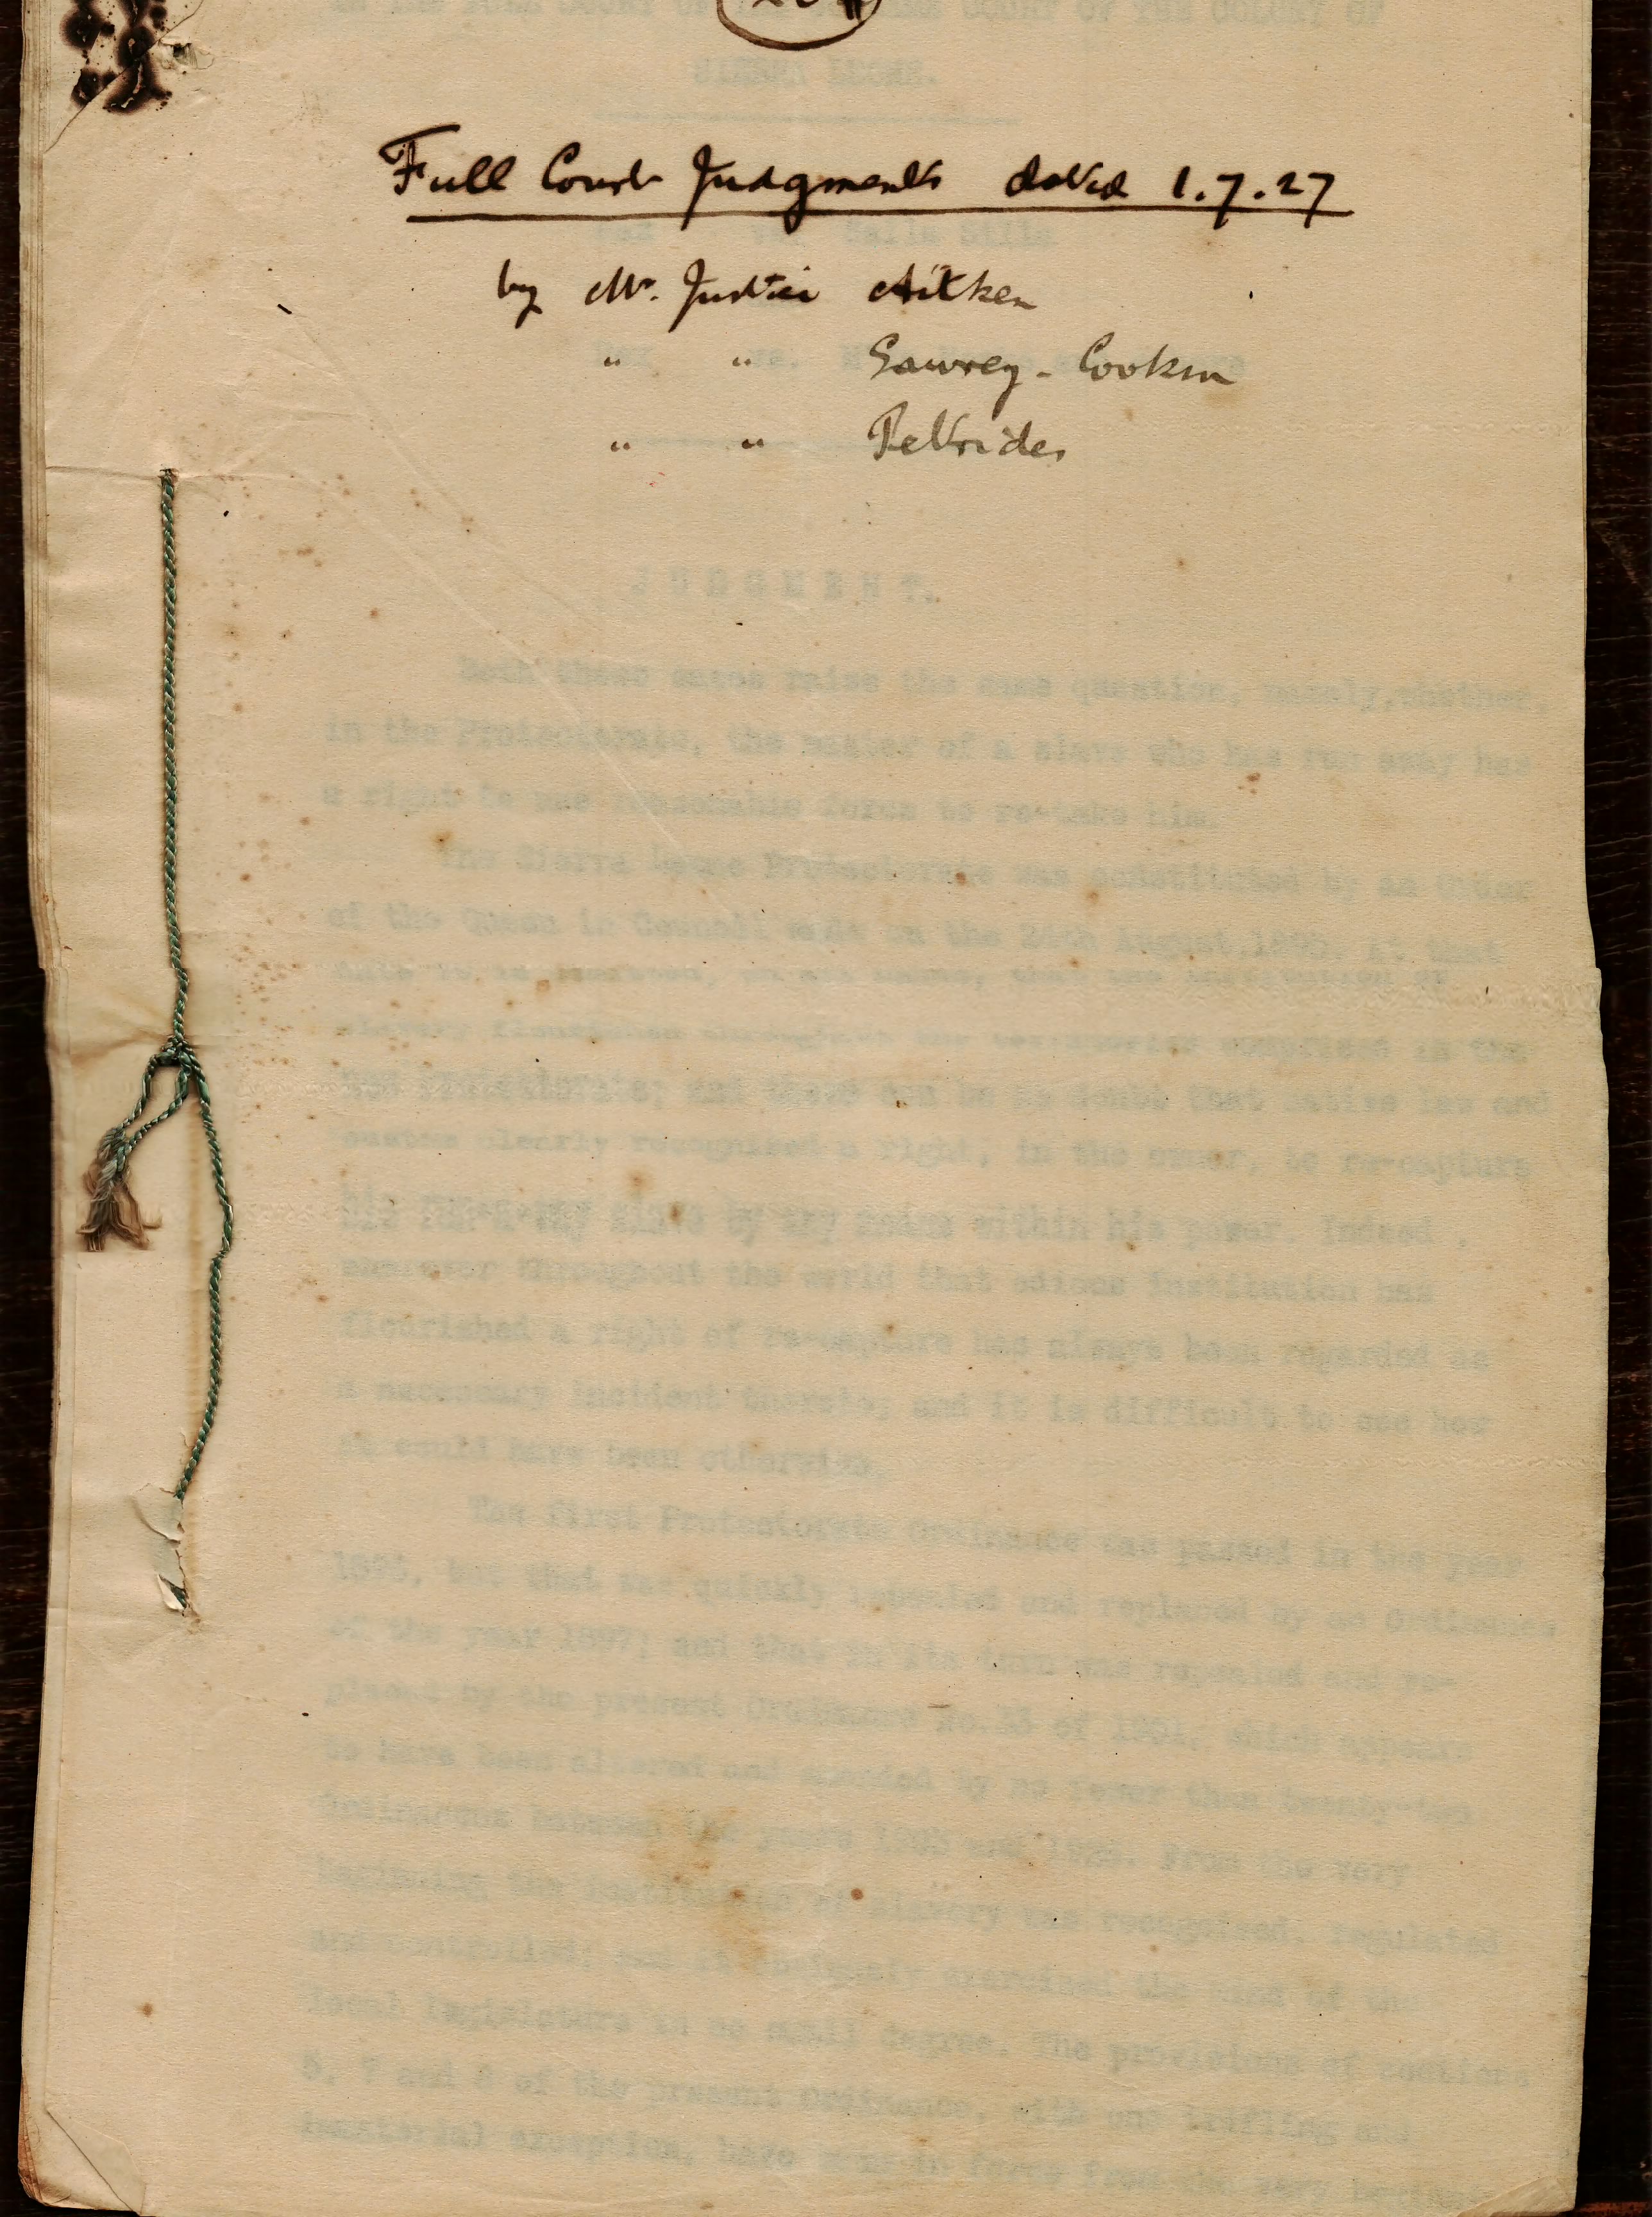 SIERRA LEONE.
Full Court Judgments dated 1.7.27
by Mr. Justice Aitken
" " Sawrey-Cookson
" " Petrides
JUDGMENT.
Both these cases raise the same question, namely, whether,
in the Protectorate, the master of a slave who has run away has
a right to use reasonable force to re-take him.
The Sierra Leone Protectorate was constituted by an Order
of the Queen in Council made on the 24th August, 1895. At that
slavery flourished throughout the territories comprised in the
new Protectorate; and there can be no doubt that native law and
custom clearly recognised a right, in the owner, to re-capture
his run-a-way slave by any means within his power. Indeed ,
wherever throughout the world that odious institution has
flourished a right of re-capture has always been regarded as
a necessary incident thereto; and it is difficult to see how
it could have been otherwise.
The first Protectorate Ordinance was passed in the year
1896, but that was quickly repealed and replaced by an Ordinance
of the year 1897; and that in its turn was repealed and re-
placed by the present Ordinance No.33 of 1901, which appears
to have been altered and amended by no fewer than twenty-two
Ordinances between the years 1903 and From the very
beginning the institution of slavery was recognised, regulated
and controlled; and it obviously exercised the mind of the
local legislature in no small degree. The provisions of sections
6, 7 and 8 of the present Ordinance, with one trifling and
immaterial exception, have been in force from the very